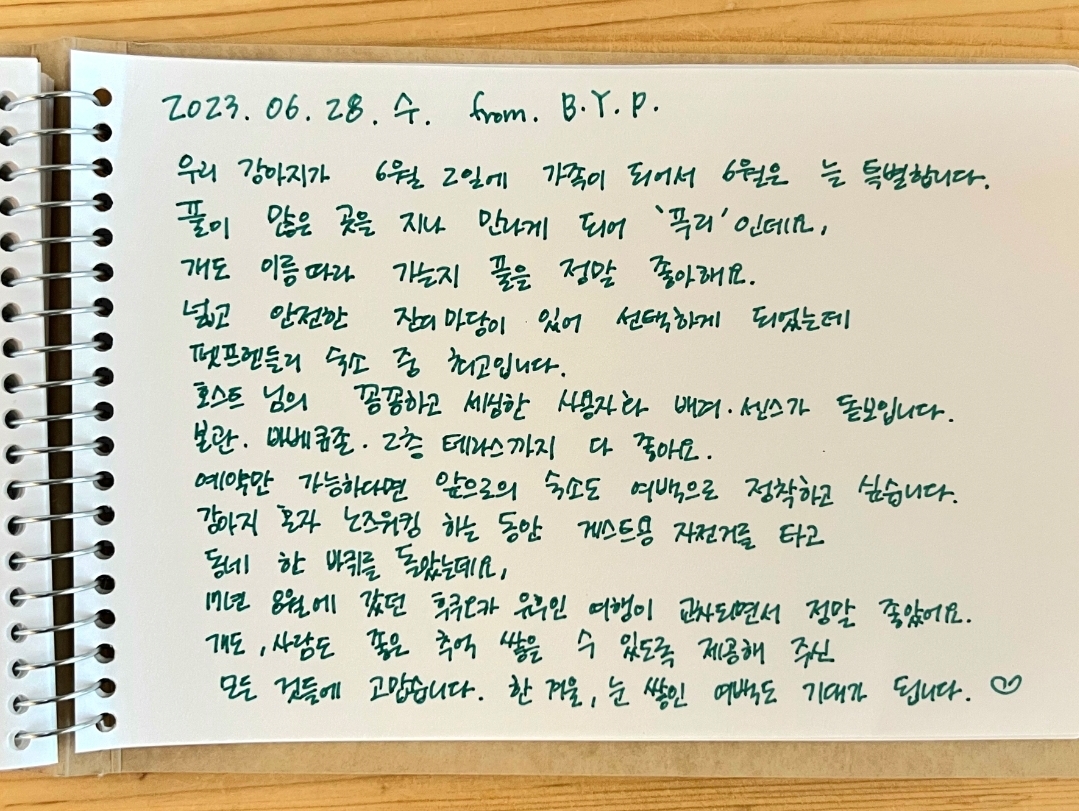 2023. 06. 28. 수. from. B.Y.P.
우리 강아지가 6월 2일에 가족이 되어서 6월은 늘 특별합니다.
풀이 많은 곳을 지나 만나게 되어 '푹리' 인데요,
개도 이름따라 가는지 풀을 정말 좋아해요.
넓고 안전한 잔디마당이 있어 선택하게 되었는데
펫프렌들리 숙소 중 최고입니다.
호스트 님의 꼼꼼하고 세심한 사용자화 배려·센스가 돋보입니다.
본관·바베큐존·2층 테라스까지 다 좋아요.
예약만 가능하다면 앞으로의 숙소도 여백으로 정착하고 싶습니다.
강아지 혼자 노즈워킹 하는 동안 게스트용 자전거를 타고
동네 한 바퀴를 돌았는데요,
17년 8월에 갔던 후쿠오카 유후인 여행이 교차되면서 정말 좋았어요.
개도, 사람도 좋은 추억 쌓을 수 있도록 제공해 주신
모든 것들에 고맙습니다. 한 겨울, 눈 쌓인 여백도 기대가 됩니다. ♡